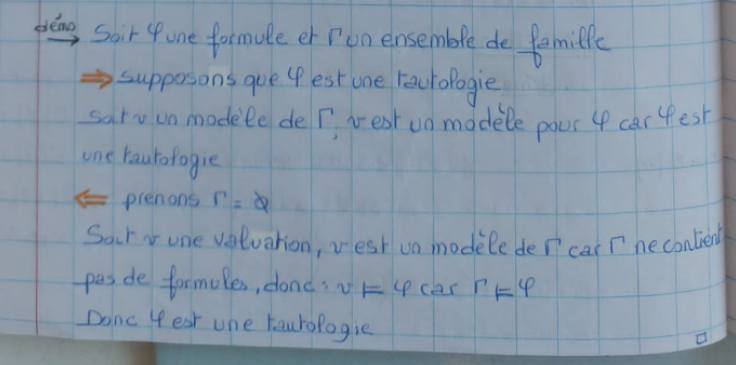 démo Soit φ une formule et Γ un ensemble de famille
⇒ supposons que φ est une tautologie
Soit v un modèle de Γ, v est un modèle pour φ car φ est
une tautologie
⇐ prenons Γ = ∅
Soit v une valuation, v est un modèle de Γ car Γ ne contient
pas de formules, donc : v ⊨ φ car Γ ⊨ φ
Donc φ est une tautologie
□